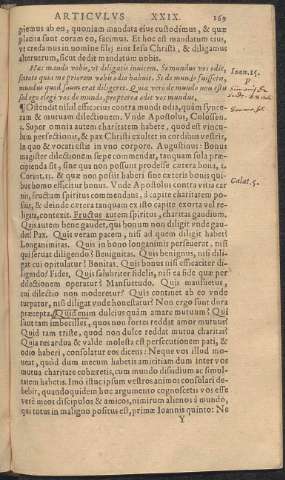 ARTICVLVS XXIX. 169
pimus ab eo, quoniam mandata eius custodimus, & quæ
placita sunt coram eo, facimus. Et hoc est mandatum eius,
vt credamus in nomine filij eius Iesu Christi, & diligamus
alterutrum, sicut dedit mandatum nobis.
Hæc mando vobis, vt diligatis inuicem. Si mundus vos odit,
scitote quia me priorem vobis odio habuit. Si de mundo fuissetis,
mundus quod suum erat diligeret. Quia vero de mundo non estis
sed ego elegi vos de mundo, propterea odit vos mundus.
Ioan.15.
Ostendit nihil efficacius contra mundi odia, quàm synce-
ram & mutuam dilectionem. Vnde Apostolus, Colossen.
3. Super omnia autem charitatem habete, quod est vincu-
lum perfectionis, & pax Christi exultet in cordibus vestris,
in qua & vocati estis in vno corpore. Augustinus: Bonus
magister dilectionem sæpe commendat, tanquam sola præ-
cipienda sit, sine qua non possunt prodesse cætera bona, 1.
Corint.13. & quæ non possit haberi sine cæteris bonis qui-
bus homo efficitur bonus. Vnde Apostolus contra vitia car-
nis, fructum spiritus commendans, à capite charitatem po-
suit, & deinde cætera tanquam ex isto capite exorta vel re-
ligata, contexit. Fructus autem spiritus, charitas gaudium.
Galat.5.
Quis autem bene gaudet, qui bonum non diligit vnde gau-
det? Pax. Quis veram pacem, nisi ad quem diligit habet?
Longanimitas. Quis in bono longanimis perseuerat, nisi
qui feruet diligendo? Benignitas. Quis benignus, nisi dili-
gat cui opitulatur? Bonitas. Quis bonus nisi efficiatur di-
ligendo? Fides. Quis salubriter fidelis, nisi ea fide quæ per
dilectionem operatur? Mansuetudo. Quis mansuetus,
cui dilectio non moderetur? Quis continet ab eo vnde
turpatur, nisi diligat vnde honestatur? Non ergo sunt dura
præcepta. Quid enim dulcius quàm amare mutuum? Qui
sunt tam imbecilles, quos non fortes reddat amor mutuus?
Quid tam triste, quod non dulce reddat mutua charitas?
Quia res ardua & valde molesta est persecutionem pati, &
odio haberi, consolatur eos dicens: Neque vos illud mo-
ueat, quòd dum mecum habetis amicitiam dum inter vos
mutua charitate cohæretis, cum mundo dissidium ac simul-
tatem habetis. Imo istac ipsum vestros animos consolari de-
bebit, quandoquidem hoc argumento cognoscetis vos esse
verè meos discipulos & amicos, nimirum alienos à mundo,
qui totus in maligno positus est, primæ Ioannis quinto: Ne
Y